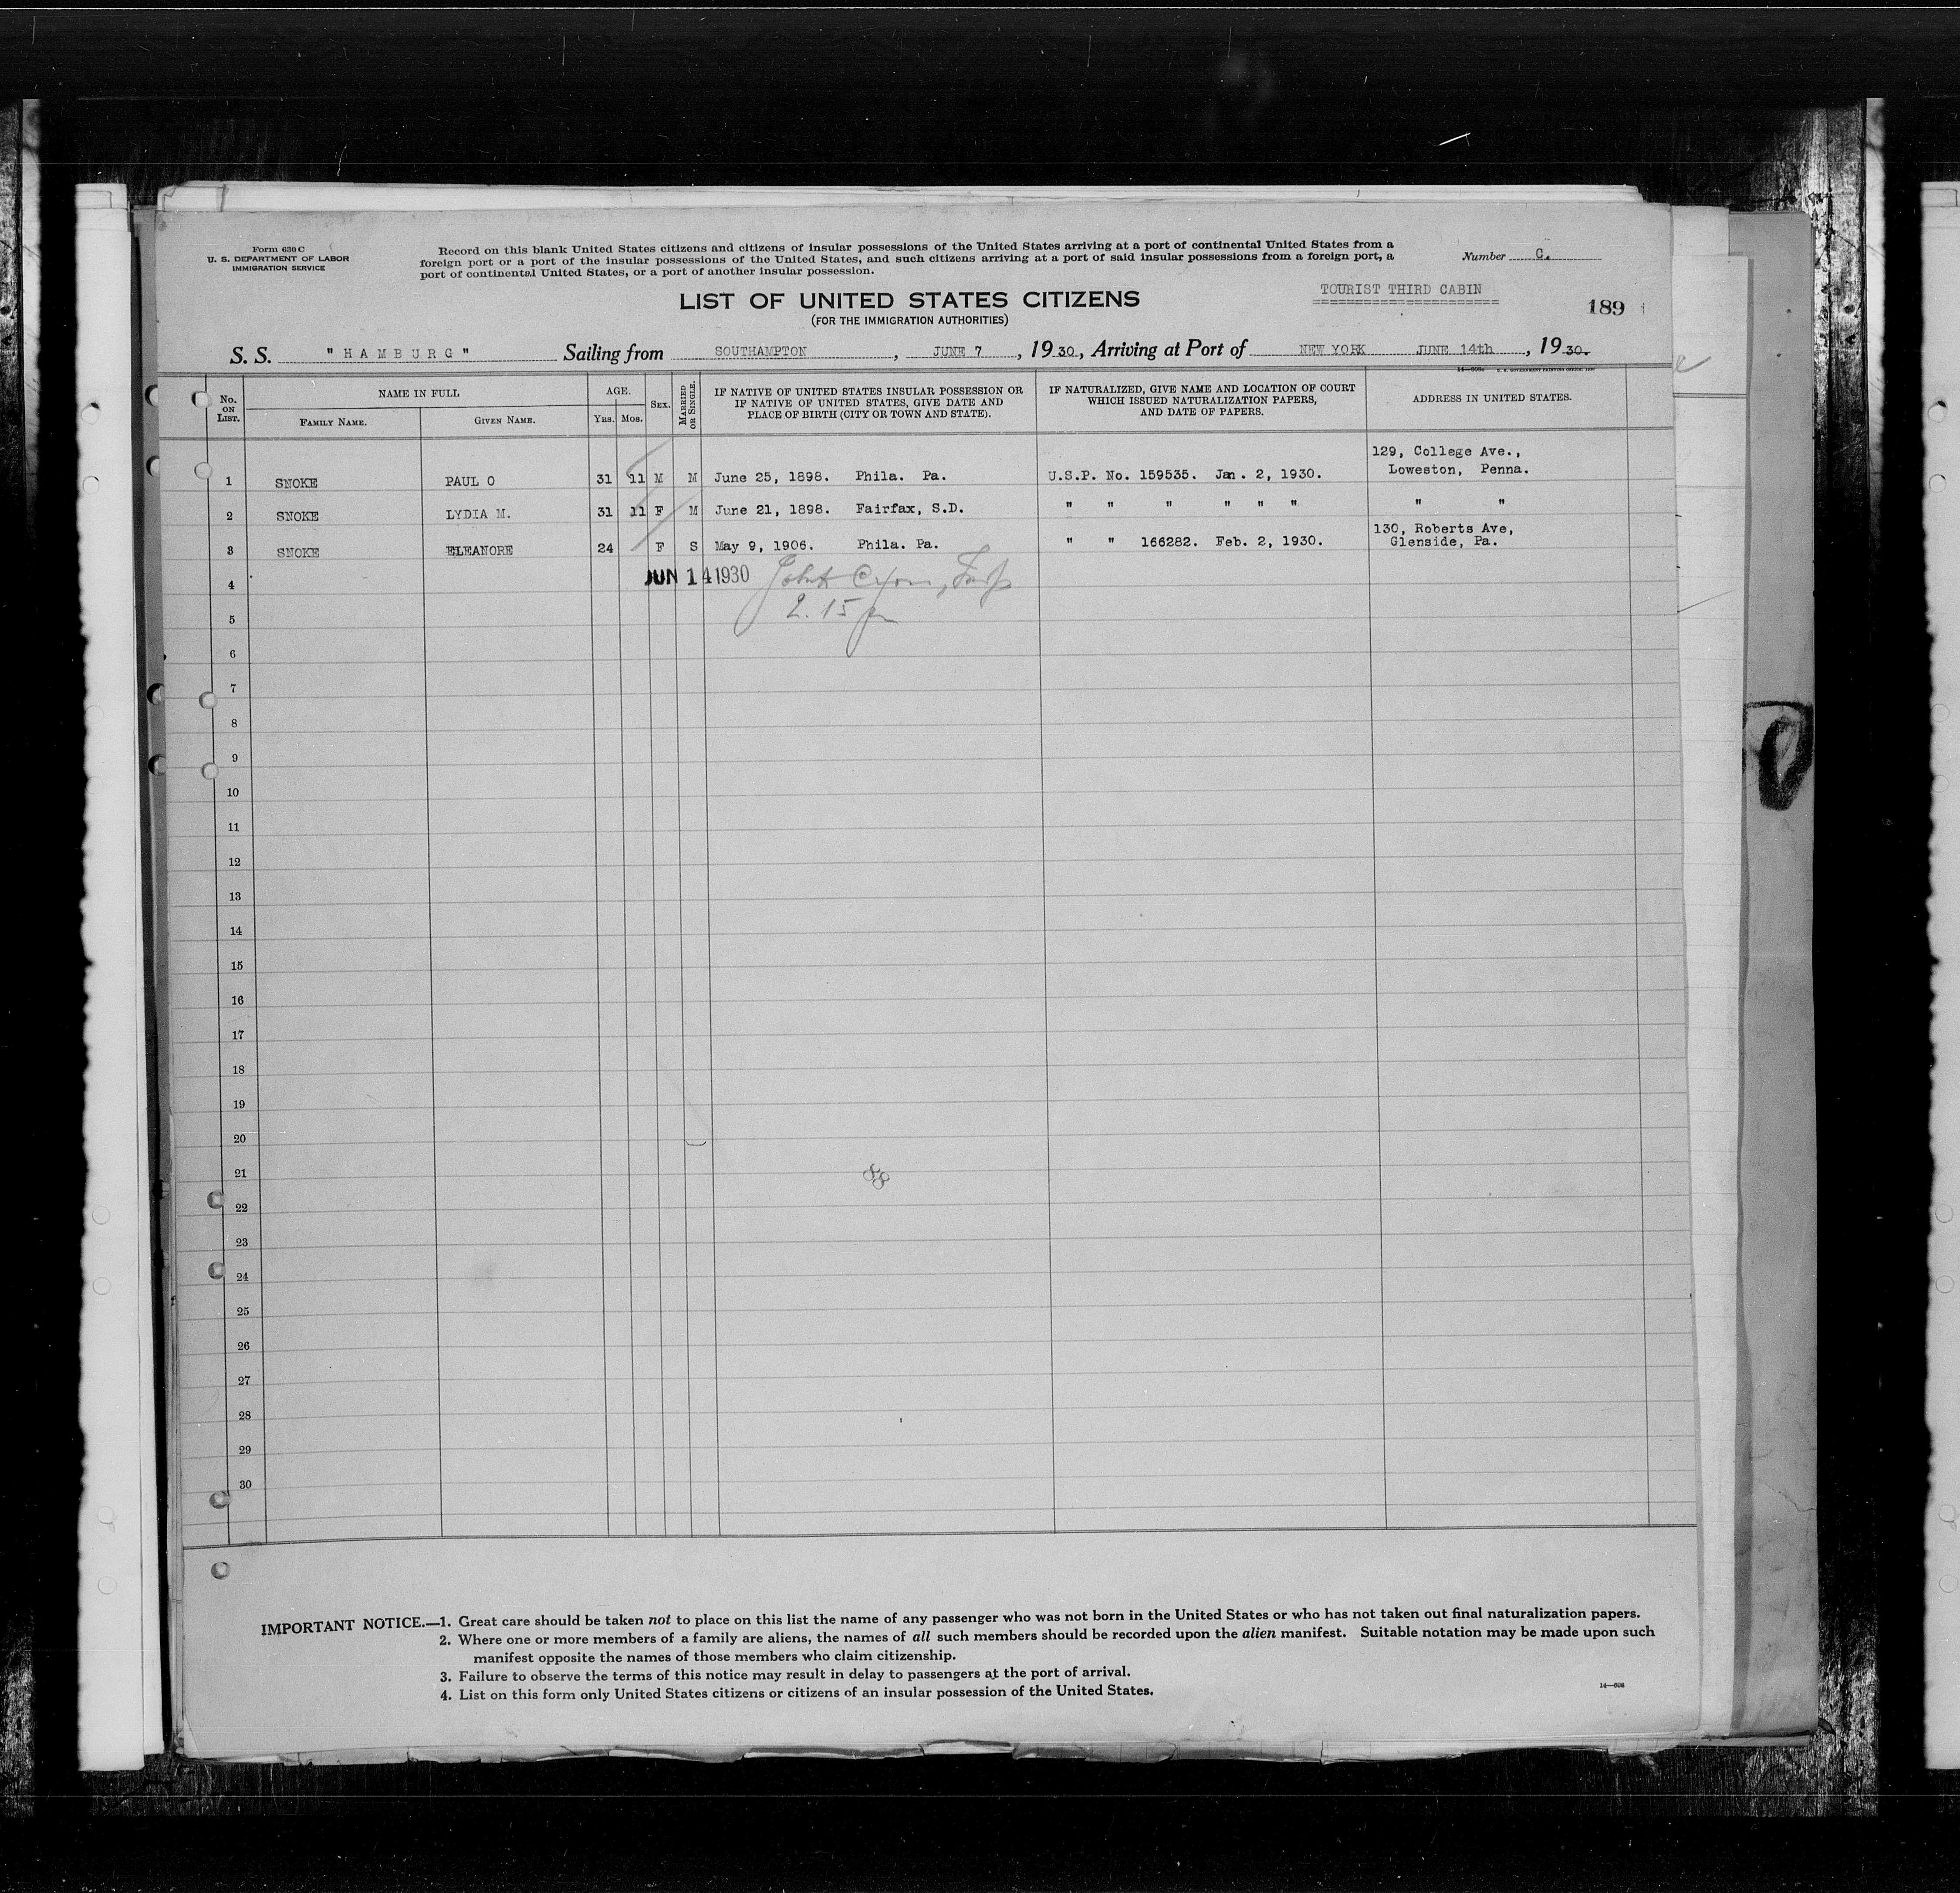 Form 630 C
U. S. DEPARTMENT OF LABOR
IMMIGRATION SERVICE
Record on this blank United States citizens and citizens of insular possessions of the United States arriving at a port of continental United States from a
foreign port or a port of the insular possessions of the United States, and such citizens arriving at a port of said insular possessions from a foreign port, a
port of continental United States, or a port of another insular possession.
Number C.
LIST OF UNITED STATES CITIZENS
(FOR THE IMMIGRATION AUTHORITIES)
TOURIST THIRD CABIN
189
S. S. "HAMBURG" Sailing from SOUTHAMPTON, JUNE 7, 1930, Arriving at Port of NEW YORK JUNE 14th, 1930.
No. ON LIST. NAME IN FULL FAMILY NAME. GIVEN NAME. AGE. YRS. MOS. SEX. MARRIED OR SINGLE. IF NATIVE OF UNITED STATES INSULAR POSSESSION OR IF NATIVE OF UNITED STATES, GIVE DATE AND PLACE OF BIRTH (CITY OR TOWN AND STATE). IF NATURALIZED, GIVE NAME AND LOCATION OF COURT WHICH ISSUED NATURALIZATION PAPERS, AND DATE OF PAPERS. ADDRESS IN UNITED STATES.
1 SNOKE PAUL O 31 11 M M June 25, 1898. Phila. Pa. U.S.P. No. 159535. Jan. 2, 1930. 129, College Ave., Loweston, Penna.
2 SNOKE LYDIA M. 31 11 F M June 21, 1898. Fairfax, S.D. " " " " " " " "
3 SNOKE ELEANORE 24 F S May 9, 1906. Phila. Pa. " " 166282. Feb. 2, 1930. 130, Roberts Ave, Glenside, Pa.
4 JUN 14 1930
2.15 pm
5
6
7
8
9
10
11
12
13
14
15
16
17
18
19
20
21
22
23
24
25
26
27
28
29
30
IMPORTANT NOTICE.—1. Great care should be taken not to place on this list the name of any passenger who was not born in the United States or who has not taken out final naturalization papers.
2. Where one or more members of a family are aliens, the names of all such members should be recorded upon the alien manifest. Suitable notation may be made upon such
manifest opposite the names of those members who claim citizenship.
3. Failure to observe the terms of this notice may result in delay to passengers at the port of arrival.
4. List on this form only United States citizens or citizens of an insular possession of the United States.